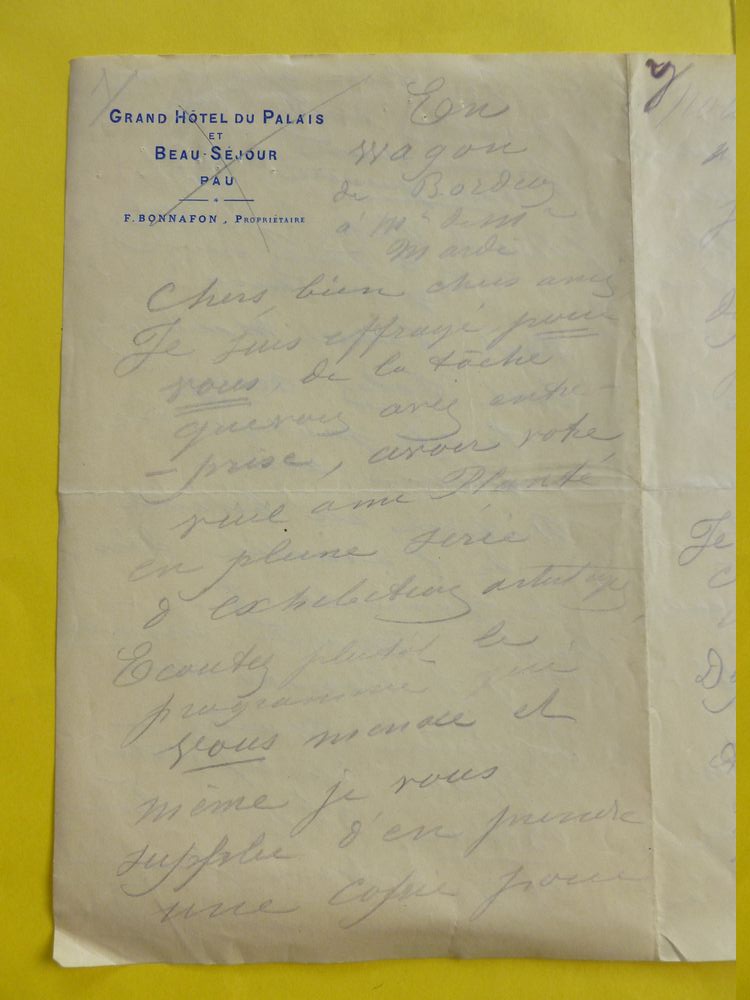 1/
GRAND HÔTEL DU PALAIS
ET
BEAU-SÉJOUR
PAU
F. BONNAFON, PROPRIÉTAIRE
En
wagon
de Bordeaux
à
Mardi
Chers, bien chers amis
Je suis effrayé pour
vous de la tâche
que vous avez entre-
-prise, avoir votre
vieil ami Planté
en pleine série
d'exhibitions artistiques,
Ecoutez plutôt le
programme qui
vous menace et
même je vous
supplie d'en prendre
une copie pour
2/
Je